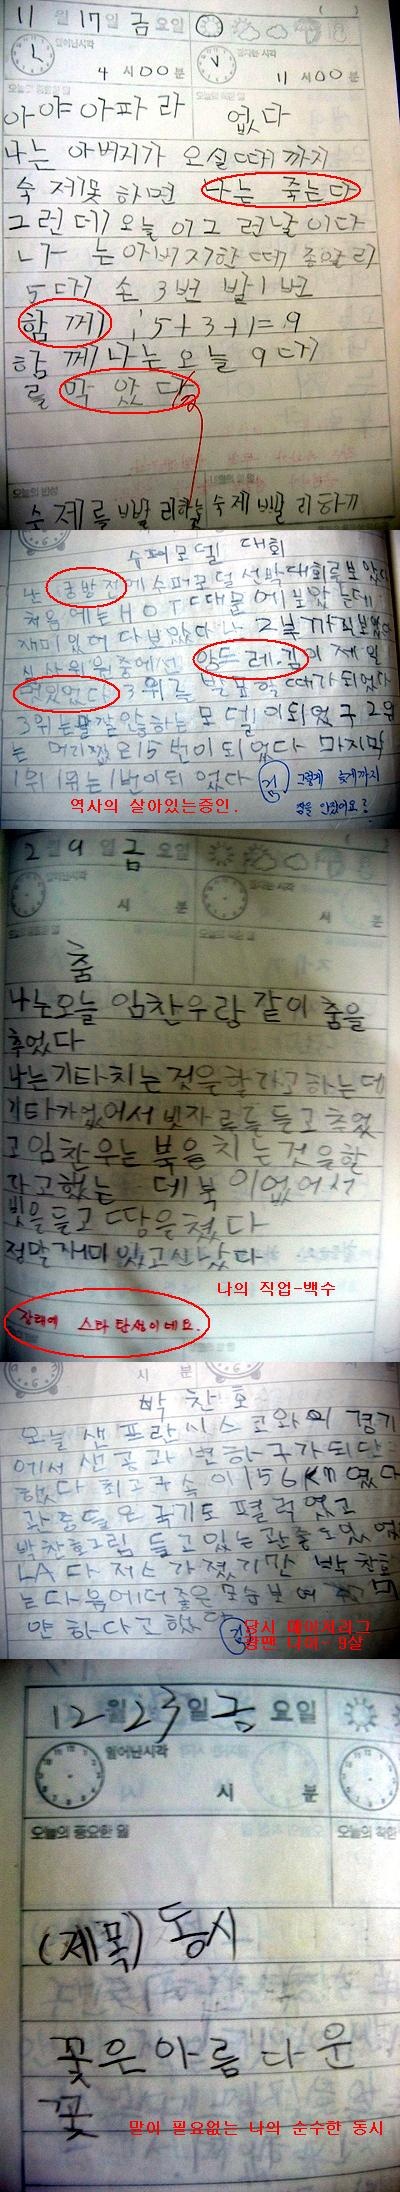 11월 17일 금요일
일어난시각
4 시 00 분
11 시 00 분
아야아파라
없다
나는 아버지가 오실때까지
숙제못 하면 나는 죽는다
그런데 오늘이 그런날이다
나는 아버지한테 종아리
5대 손 3번 발 1번
함께 5+3+1=9
함께 나는 오늘 9대
를 막 았다
오늘의 반성
숙제를 빨리하늘 숙제빨리하기
슈퍼모델 대회
처음에는 HOT 때문에 보았는데
재미있어 다보았다 나는 2부까지 보았다
심사위원중에선 앙드레.김이 제일
멋있었다 3위를 발표할때가 되었다
3위는 말같이 하는 모델이되었구 2위
는 머리짧은 15번이 되었다 마지막
1위 1위는 1번이 되었다
그렇게 늦게까지
잠을 안잤어요?
역사의 살아있는증인.
2월 9일 금요일
일어난시각
시 분
시 분
춤
나는오늘 임찬우랑 같이 춤을
추었다
나는기타치는 것을할라고하는데
기타가없어서 빗자루를 들고추었
고임찬우는북을치는것을할
라고했는데 북이없어서
빗을들고 땅을쳤다
정말재미있고신났다
나의 직업-백수
장래에 스타탄생이네요.
시 분
박찬호
오늘 샌프란시스코와의 경기
에서
했다 최고구속이 156km였다
관중들은 국기도 펄럭였고
박찬호그림 들고있는관중도있었
LA다저스가졌지만 박찬호
는다음에더좋은모습보여
안하다고했다
당시 메이저리그
광팬 나이- 9살
12월 23일 금요일
일어난시각
시 분
오늘의 중요한 일
오늘의 착한
(제목) 동시
꽃은아름다운
꽃
말이 필요없는 나의 순수한 동시